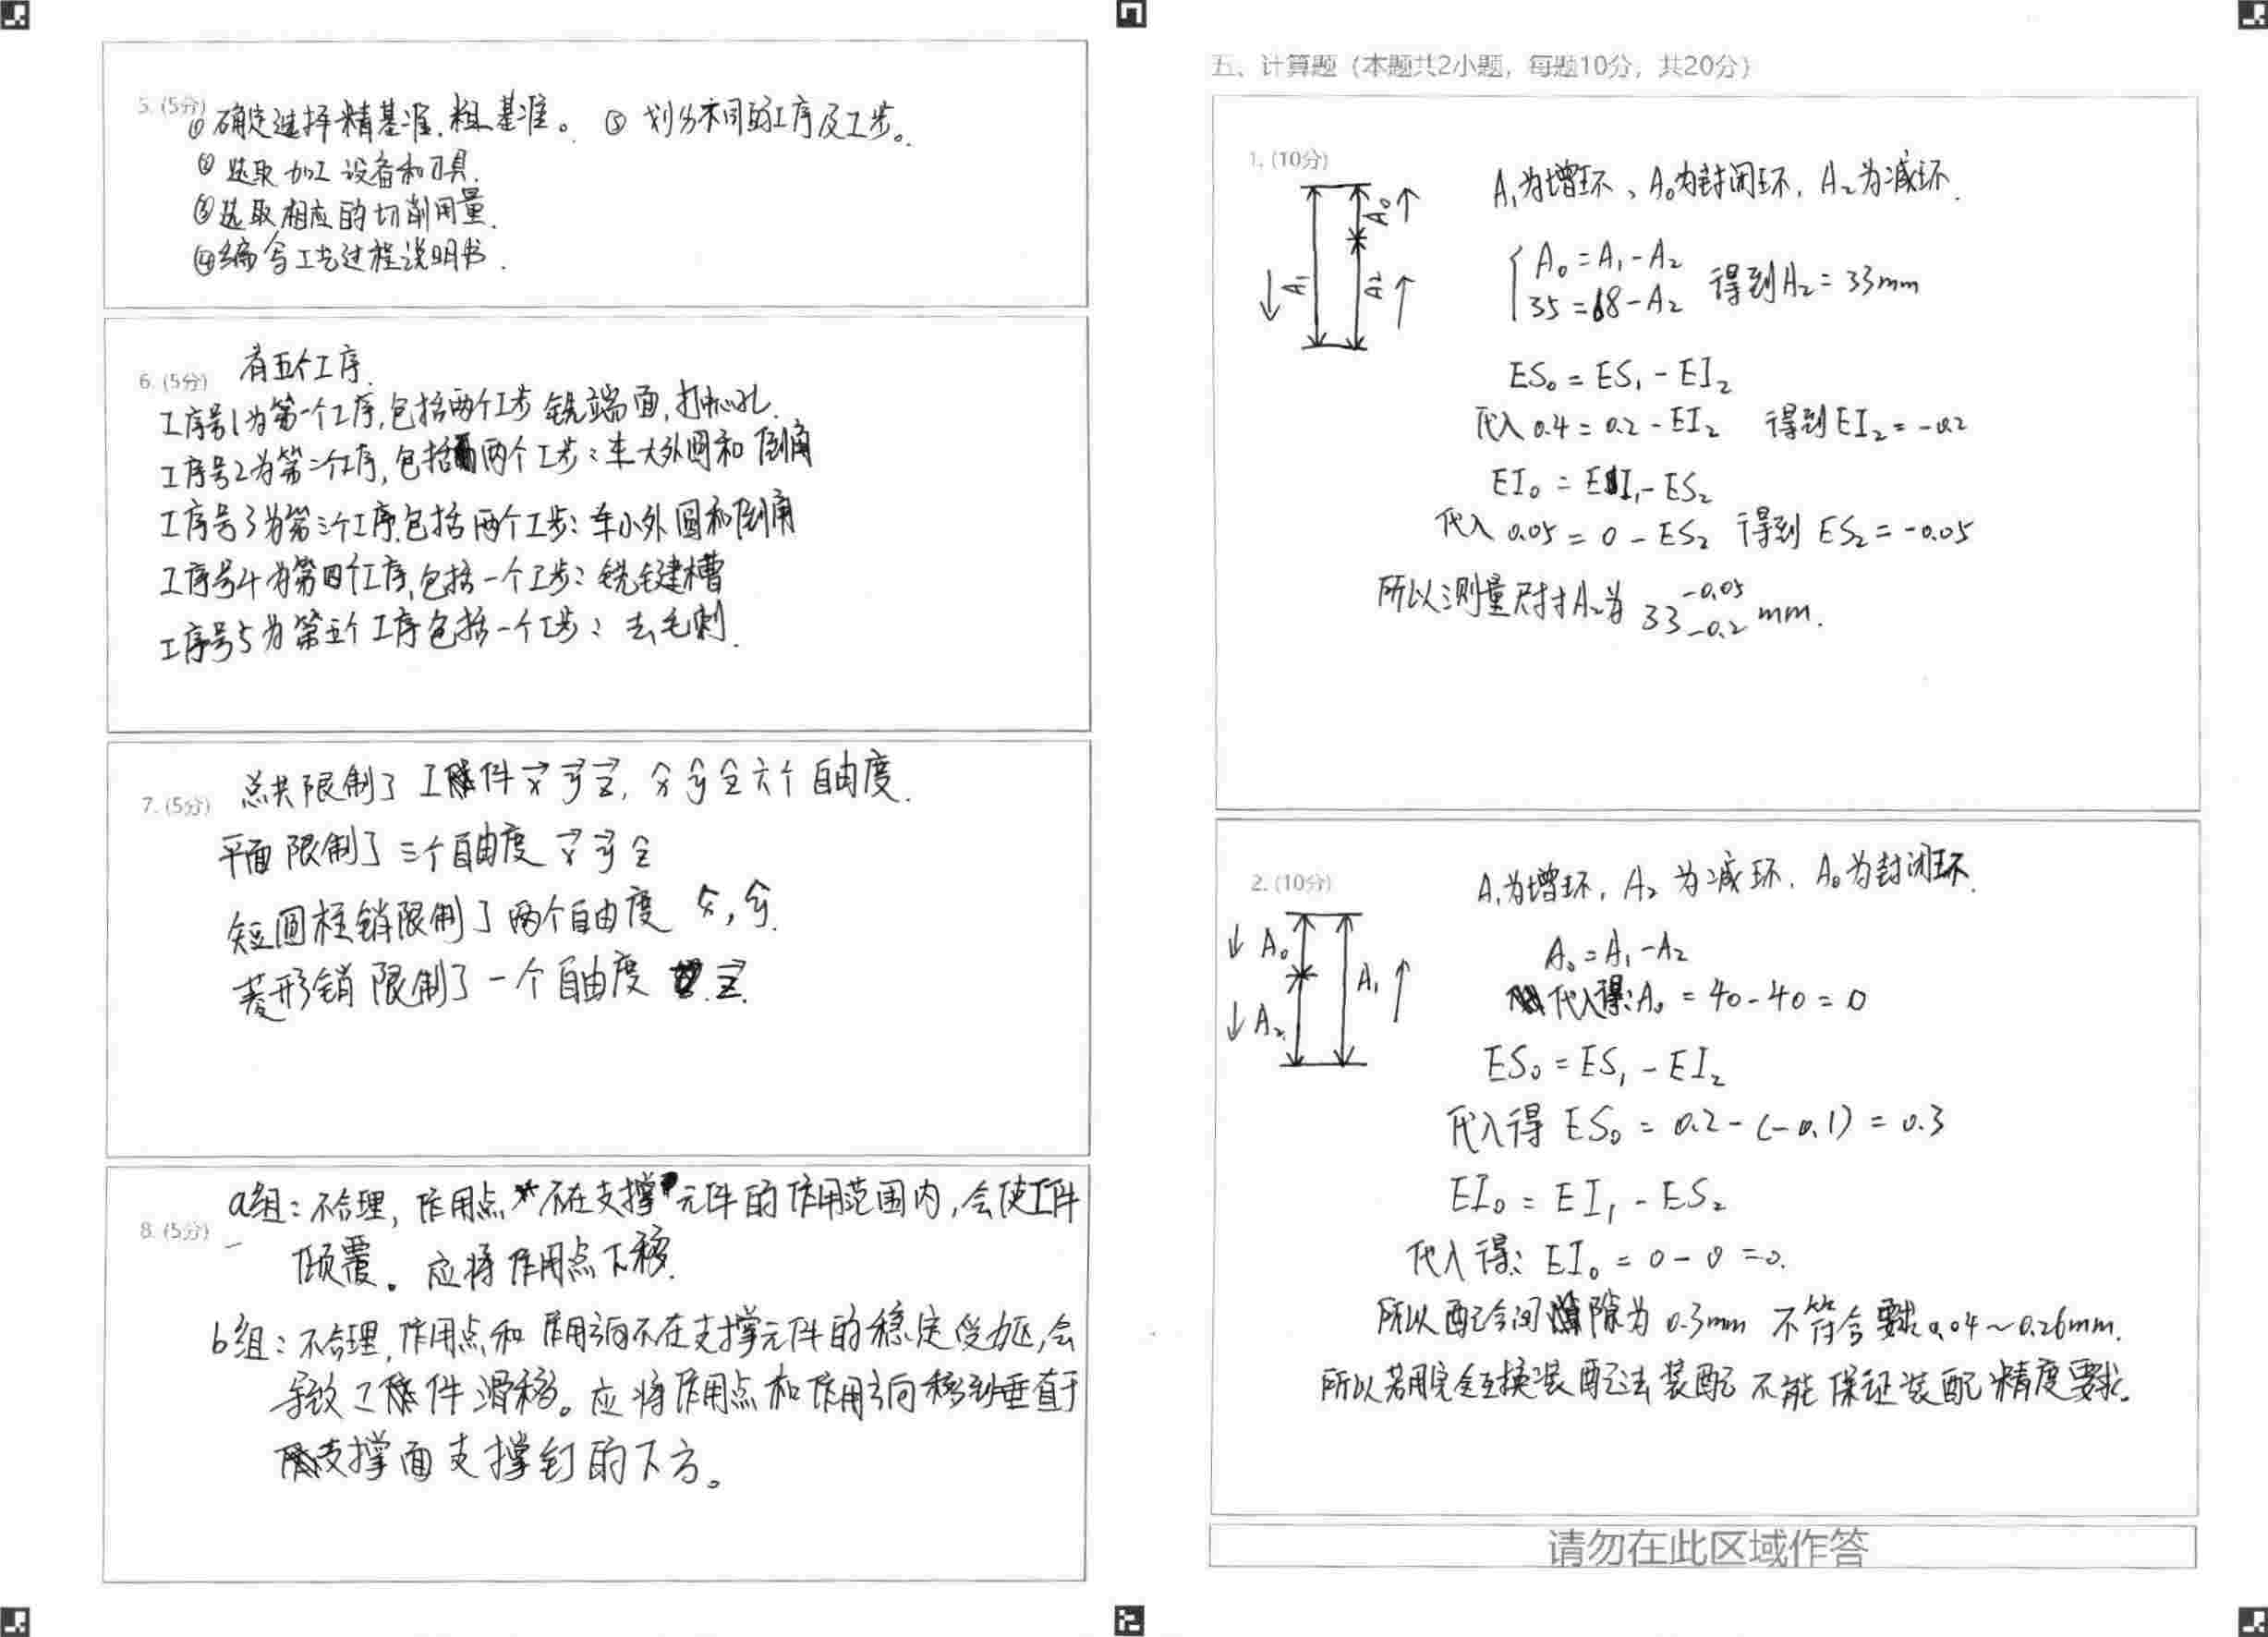 5. (5分)
①确定选择精基准、粗基准。 ⑤ 划分不同的工序及工步。
② 选取加工设备和刀具.
③选取相应的切削用量.
④编写工艺过程说明书.
6. (5分) 有五个工序.
工序号1为第一个工序,包括两个工步 铣端面,打中心孔.
工序号2为第二个工序,包括两个工步:车大外圆和倒角
工序号3为第三个工序.包括两个工步:车小外圆和倒角
工序号4为第四个工序,包括一个工步:铣键槽
工序号5为第五个工序包括一个工步:去毛刺.
7. (5分) 总共限制了工件x⃗ y⃗ z⃗, x̂ ŷ ẑ六个自由度.
平面限制了三个自由度 x⃗ y⃗ ẑ
短圆柱销限制了两个自由度 x̂, ŷ.
菱形销限制了一个自由度 z⃗.
8. (5分) a组:不合理,作用点不在支撑元件的作用范围内,会使工件
倾覆。应将作用点下移.
b组:不合理,作用点和作用方向不在支撑元件的稳定受力区,会
导致工件滑移。应将作用点和作用方向移到垂直于
支撑面支撑钉的下方。
五、计算题(本题共2小题,每题10分,共20分)
1. (10分)
A₁为增环、A₀为封闭环, A₂为减环.
A₀
A₁
A₂
A₀ = A₁ - A₂
35 = 68 - A₂ 得到A₂ = 33mm
ES₀ = ES₁ - EI₂
代入 0.4 = 0.2 - EI₂ 得到EI₂ = -0.2
EI₀ = EI₁ - ES₂
代入 0.05 = 0 - ES₂ 得到 ES₂ = -0.05
所以测量尺寸A₂为 33 -0.05 -0.2 mm.
2. (10分)
A₁为增环, A₂为减环, A₀为封闭环.
A₀
A₁
A₂
A₀ = A₁ - A₂
代入得:A₀ = 40 - 40 = 0
ES₀ = ES₁ - EI₂
代入得 ES₀ = 0.2 - (-0.1) = 0.3
EI₀ = EI₁ - ES₂
代入得: EI₀ = 0 - 0 = 0.
所以配合间隙为 0.3mm 不符合要求0.04~0.26mm.
所以若用完全互换装配法装配不能保证装配精度要求.
请勿在此区域作答